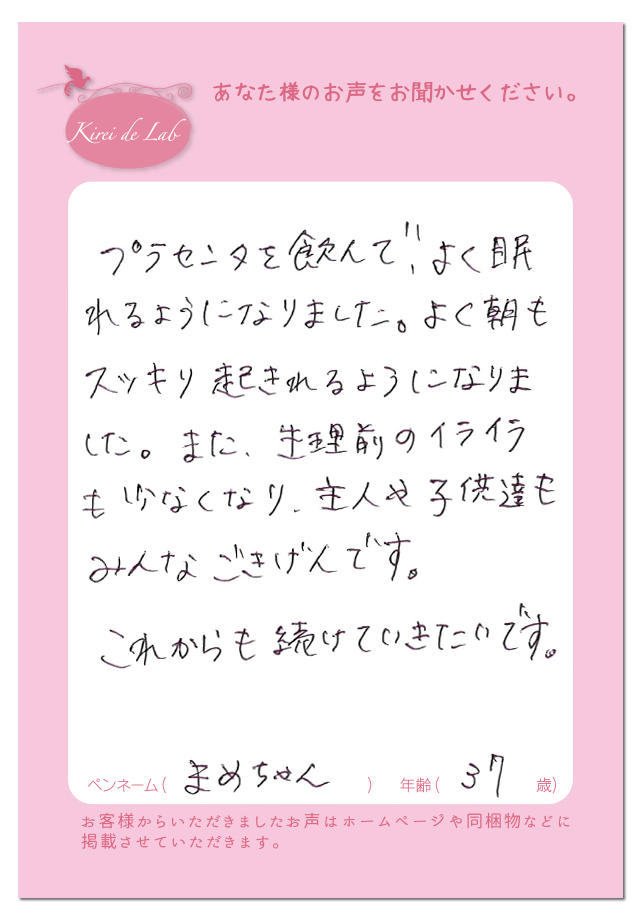 あなた様のお声をお聞かせください。
Kirei de Lab
プラセンタを飲んで、よく眠
れるようになりました。よく朝も
スッキリ起きれるようになりま
した。また、生理前のイライラ
も少なくなり、主人や子供達も
みんなごきげんです。
これからも続けていきたいです。
ペンネーム( まめちゃん ) 年齢( 37 歳)
お客様からいただきましたお声はホームページや同梱物などに
掲載させていただきます。